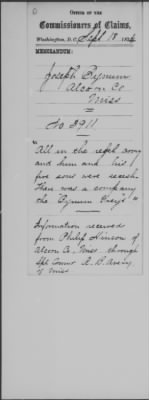 OFFICE OF THE
Commissioners of Claims,
Washington, D.C., Sept. 18, 187
MEMORANDUM:
Joseph Bynum
Alcorn Co
Miss
No. 3911
"All in the rebel army
and him and his
five sons were secesh.
There was a company
the Bynum Greys"
Information received
from Philip Henson of
Alcorn Co, Miss. through
Spl Commr R. B. Avery
of Miss